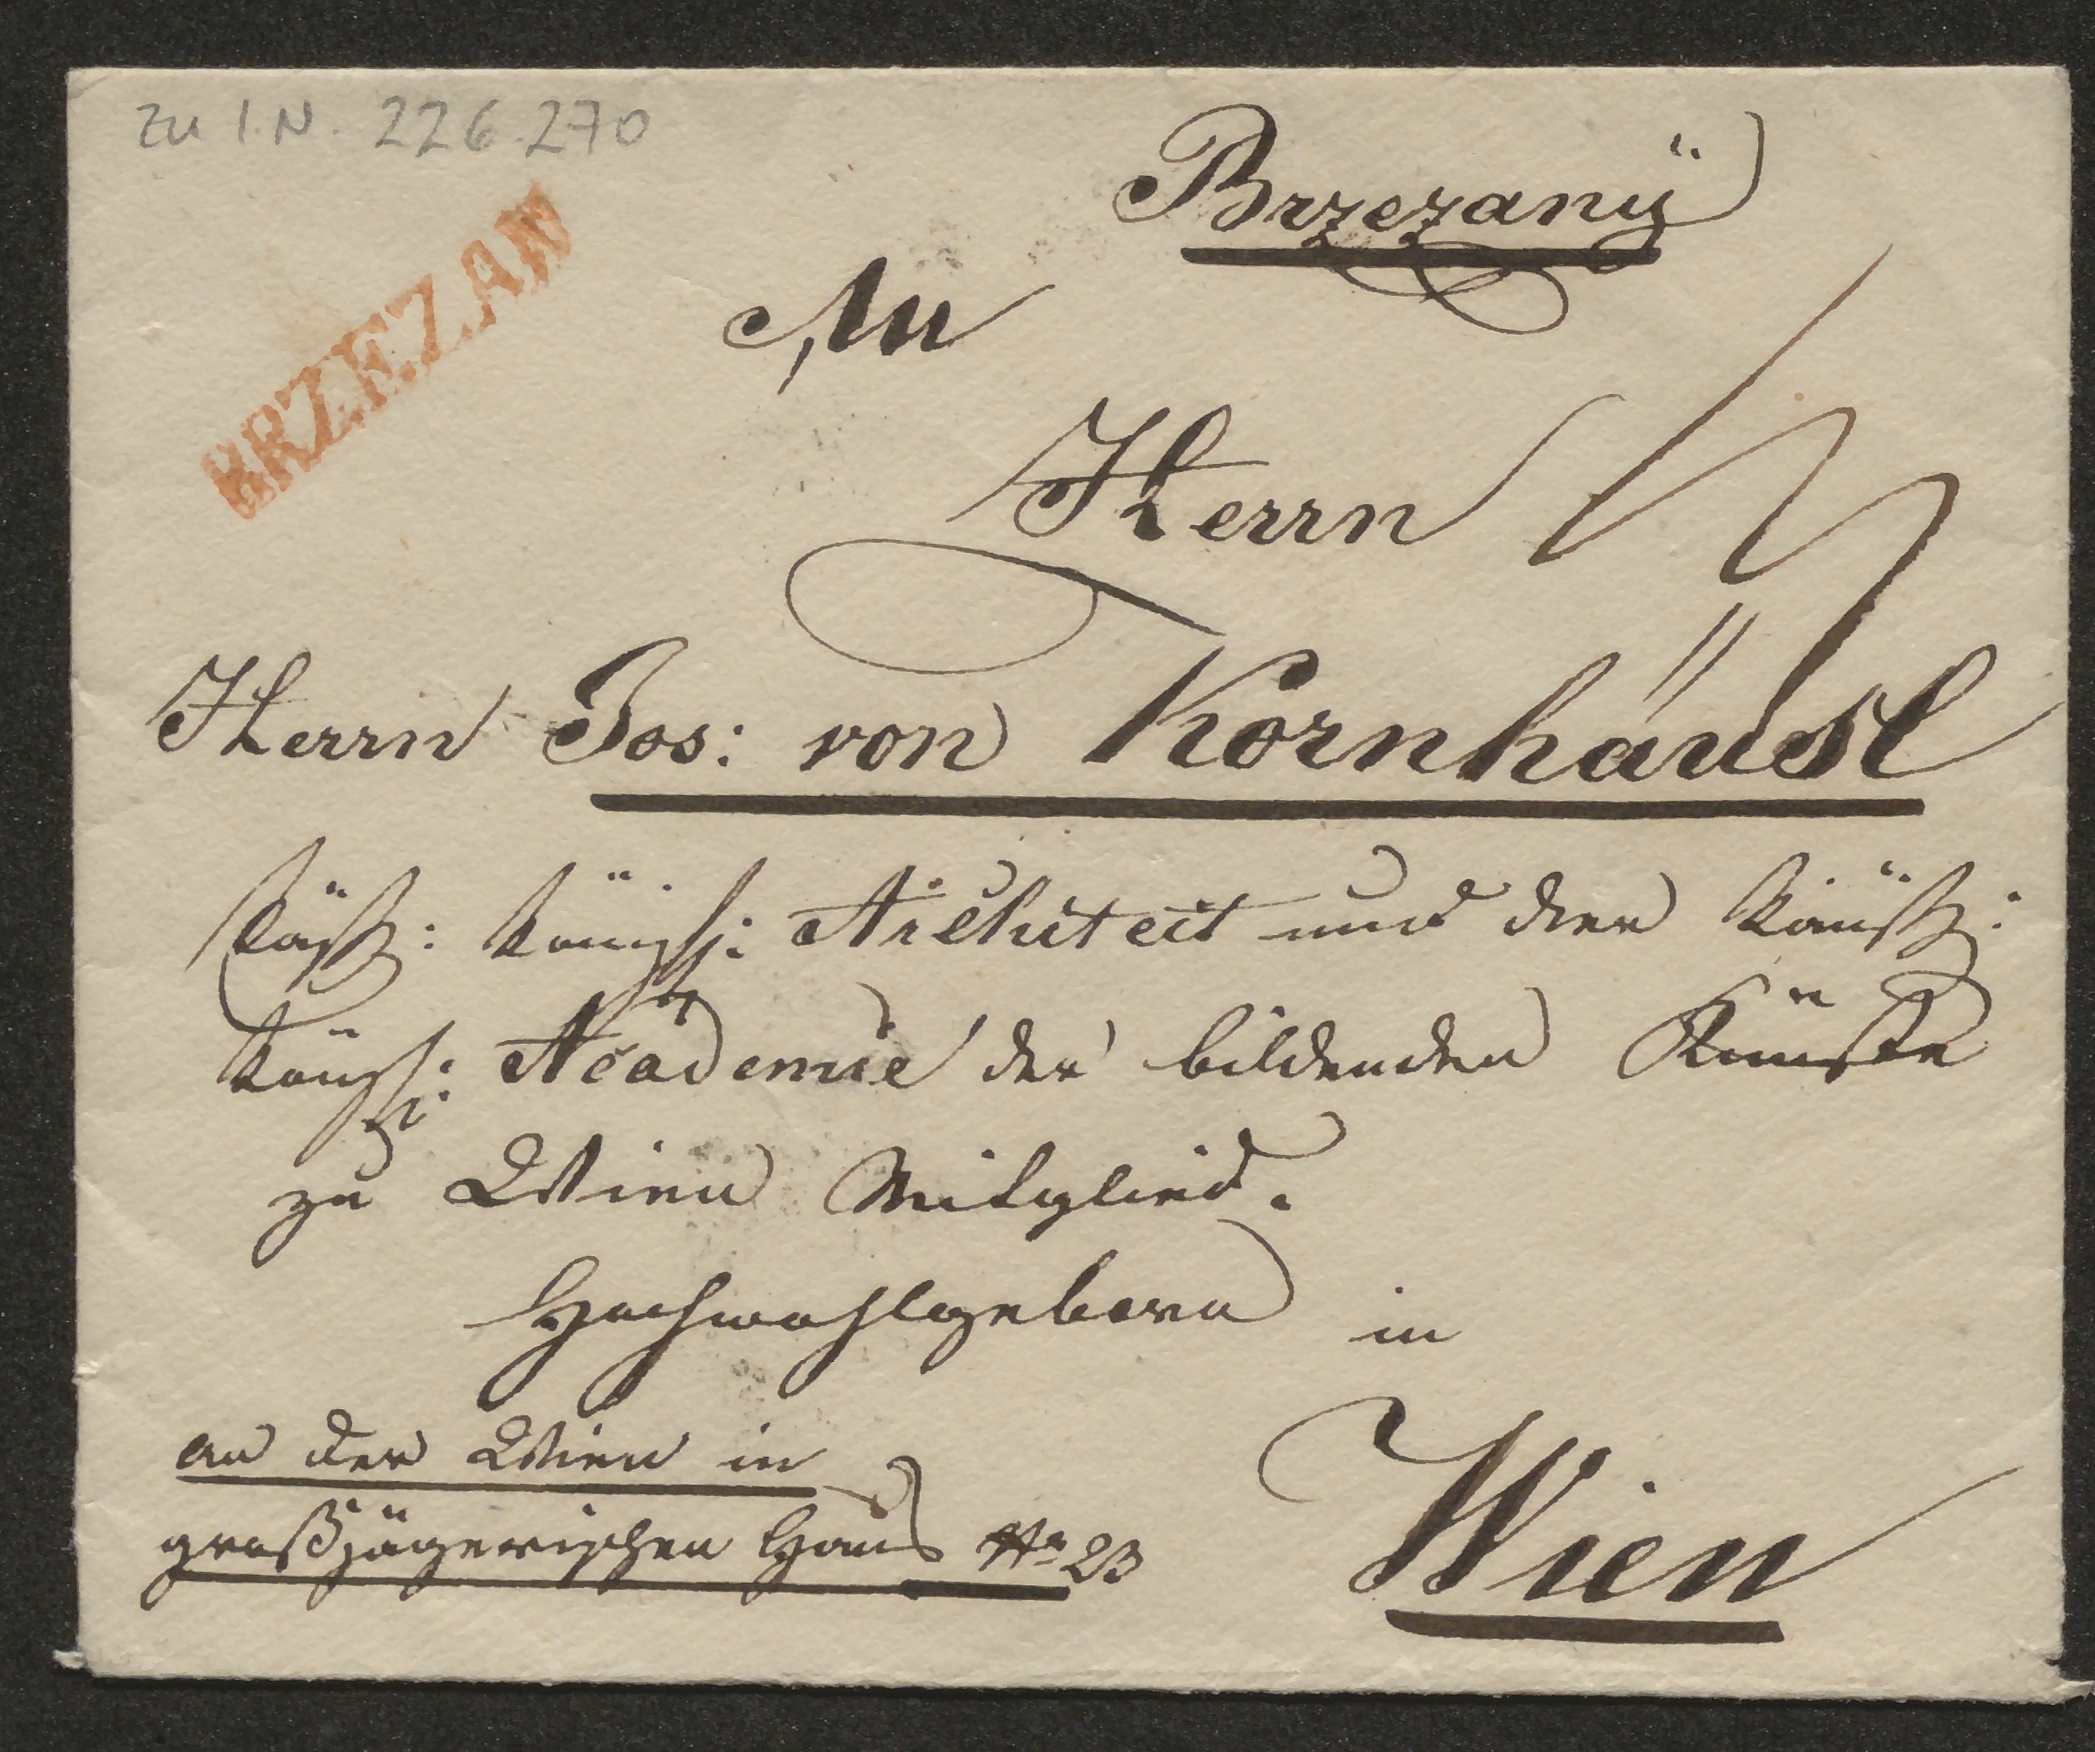 zu I.N. 226.270
BRZEZAN
Brzezanÿ
An
Herrn
Herrn Jos: von Kornhäusl
kaÿß: könighl: Architect und der kaÿß:
königl: Academie der bildenden Künste
zu Wien Mitglied.
Hochwohlgeborn in
an der Wien in
großjägerischen Haus No 23
Wien